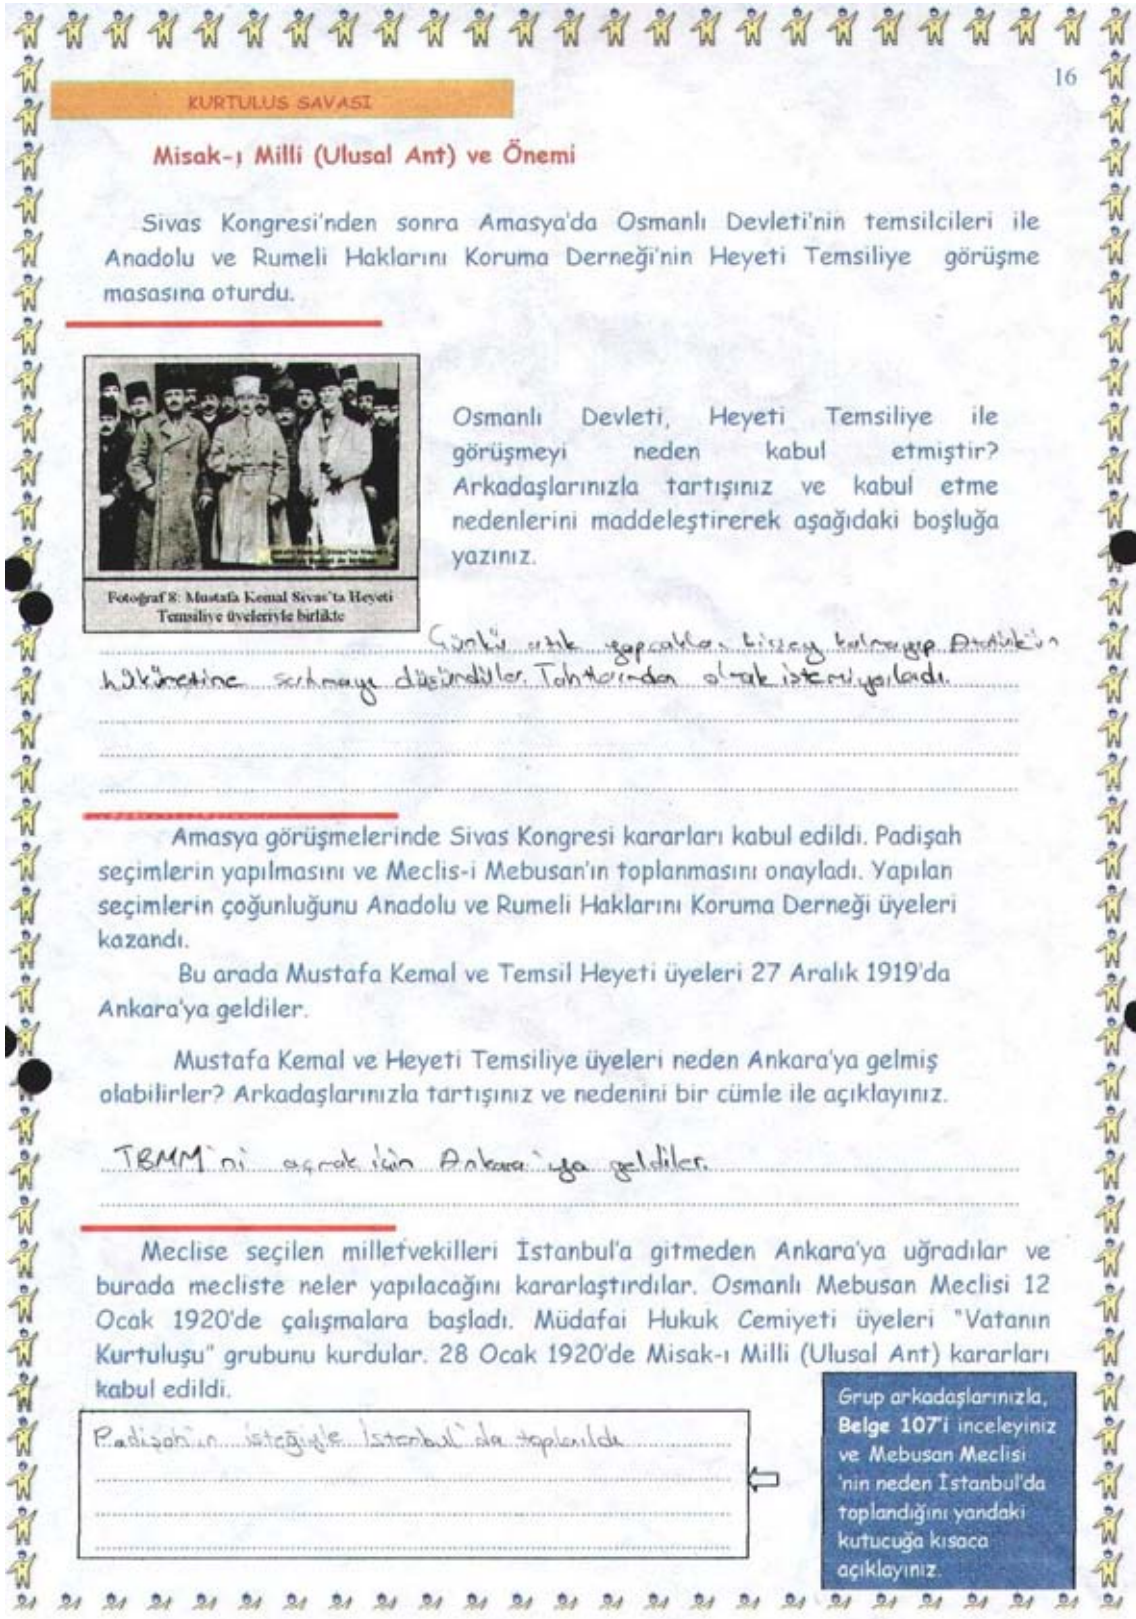 16
KURTULUS SAVASI
Misak-ı Milli (Ulusal Ant) ve Önemi
Sivas Kongresi'nden sonra Amasya'da Osmanlı Devleti'nin temsilcileri ile
Anadolu ve Rumeli Haklarını Koruma Derneği'nin Heyeti Temsiliye görüşme
masasına oturdu.
Osmanlı Devleti, Heyeti Temsiliye ile
görüşmeyi neden kabul etmiştir?
Arkadaşlarınızla tartışınız ve kabul etme
nedenlerini maddeleştirerek aşağıdaki boşluğa
yazınız.
Fotoğraf 8: Mustafa Kemal Sivas'ta Heyeti
Temsiliye üyeleriyle birlikte
Çünkü artık yapcakları birşey kalmayıp Atatürk'ün
hükümetine düşündüler. Tahtlarından olmak istemiyorlardı.
Amasya görüşmelerinde Sivas Kongresi kararları kabul edildi. Padişah
seçimlerin yapılmasını ve Meclis-i Mebusan'ın toplanmasını onayladı. Yapılan
seçimlerin çoğunluğunu Anadolu ve Rumeli Haklarını Koruma Derneği üyeleri
kazandı.
Bu arada Mustafa Kemal ve Temsil Heyeti üyeleri 27 Aralık 1919'da
Ankara'ya geldiler.
Mustafa Kemal ve Heyeti Temsiliye üyeleri neden Ankara'ya gelmiş
olabilirler? Arkadaşlarınızla tartışınız ve nedenini bir cümle ile açıklayınız.
TBMM'ni açmak için Ankara'ya geldiler.
Meclise seçilen milletvekilleri İstanbul'a gitmeden Ankara'ya uğradılar ve
burada mecliste neler yapılacağını kararlaştırdılar. Osmanlı Mebusan Meclisi 12
Ocak 1920'de çalışmalara başladı. Müdafai Hukuk Cemiyeti üyeleri "Vatanın
Kurtuluşu" grubunu kurdular. 28 Ocak 1920'de Misak-ı Milli (Ulusal Ant) kararları
kabul edildi.
Padişah'ın isteğiyle İstanbul'da
Grup arkadaşlarınızla,
Belge 107'i inceleyiniz
ve Mebusan Meclisi
'nin neden İstanbul'da
toplandığını yandaki
kutucuğa kısaca
açıklayınız.